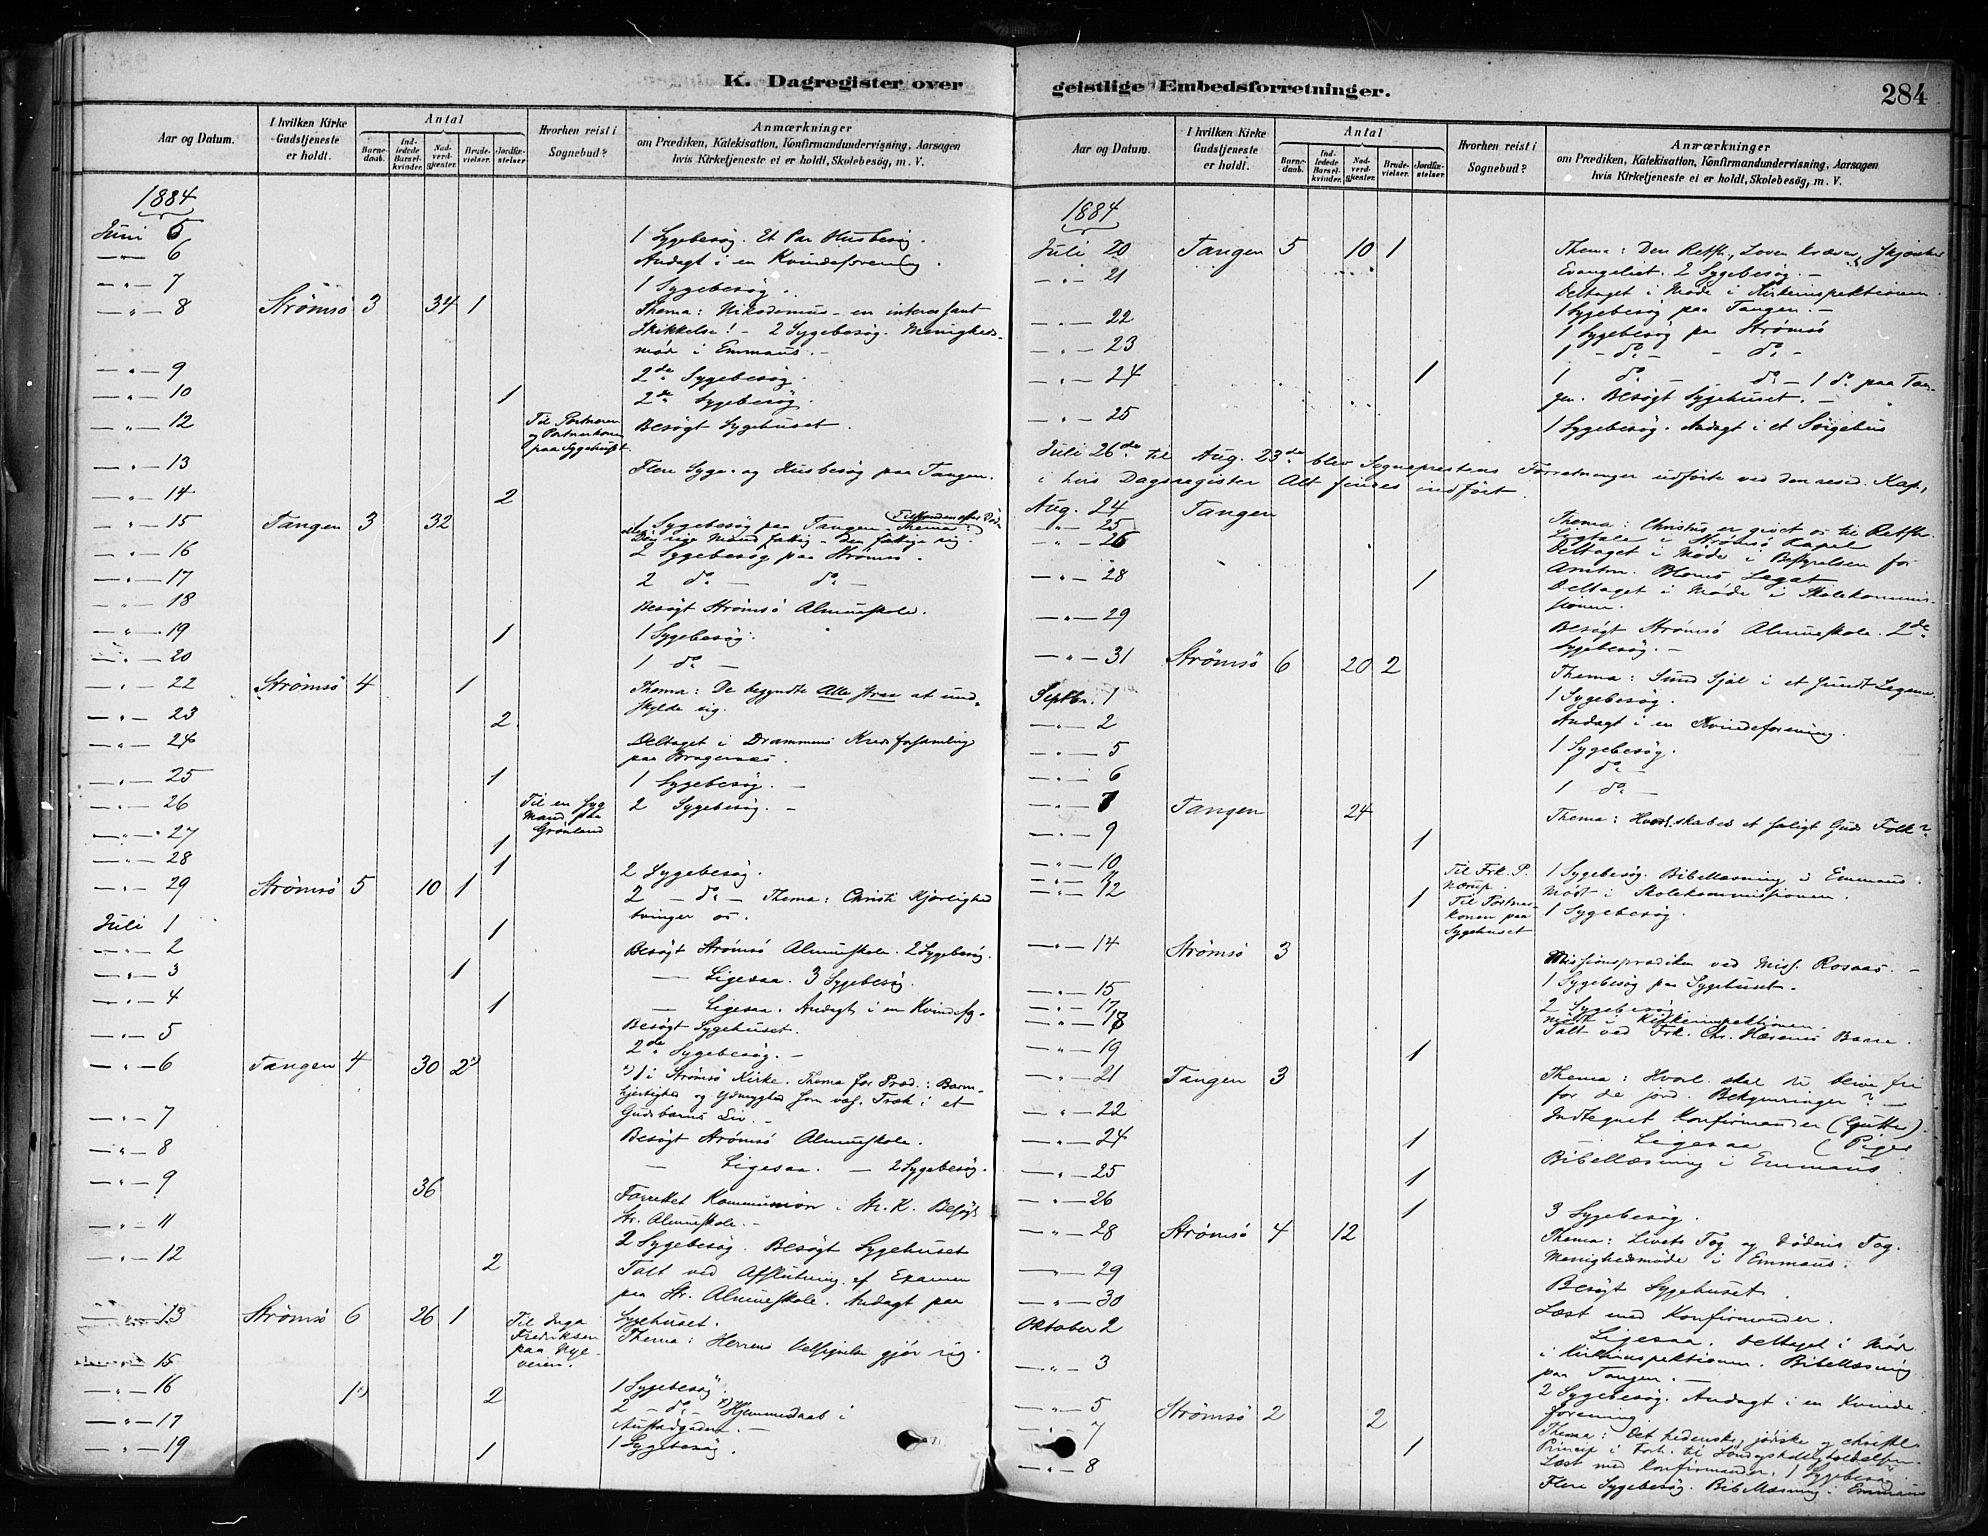 K. Dagregister over
Aar og Datum.
I hvilken Kirke Gudstjeneste er holdt.
Antal
Barnedaab.
Indledede Barselkvinder.
Nadverdgjester.
Brudevielser.
Jordfæstelser
Hvorhen reist i Sognebud?
Anmærkninger
om Prædiken, Katekisation, Konfirmandundervisning, Aarsagen
hvis Kirketjeneste ei er holdt, Skolebesøg, m. V.
1884
Juni 5 1 Sygebesøg. Et Par Husbesøg.
— " — 6 Andagt i en Kvindeforening.
— " — 7 1 Sygebesøg.
— " — 8 Strømsø 3 34 1 Thema: Nikodemus – en interessant
Skikkelse! – 2 Sygebesøg. Menigheds-
møde i Emmaus. –
— " — 9 2de Sygebesøg.
— " — 10 1 2de Sygebesøg.
— " — 12 Til Portneren
og Portnerkonen
paa Sygehuset Besøgt Sygehuset.
— " — 13 Flere Syge- og Husbesøg paa Tangen.
— " — 14 2
— " — 15 Tangen 3 32 1 Sygebesøg paa Tangen. Thema: Tilstanden efter Døden
Den rige Mand fattig – Den fattige rig.
— " — 16 2 Sygebesøg paa Strømsø.
— " — 17 2 do – do –
— " — 18 Besøgt Strømsø Almueskole.
— " — 19 1 1 Sygebesøg.
— " — 20 1 do –
— " — 22 Strømsø 4 1 Thema: De begyndte Alle strax at und-
skylde sig.
— " — 23 2
— " — 24 Deltaget i Drammens Kredsforsamling
paa Bragernæs.
— " — 25 1 1 Sygebesøg. –
— " — 26 Til en syg
Mand paa
Grønland 2 Sygebesøg. –
— " — 27 1
— " — 28 1 2 Sygebesøg.
— " — 29 Strømsø 5 10 1 2 – do – Thema: Christi Kjærlighed
tvinger os.
Juli 1 1
— " — 2 Besøgt Strømsø Almueskole. 2 Sygebesøg.
— " — 3 1 — Ligesaa. 3 Sygebesøg.
— " — 4 1 — Ligesaa. Andagt i en Kvindefg.
— " — 5 Besøgt Sygehuset.
2de Sygebesøg. –
— " — 6 Tangen 4 30 2*) *) 1 i Strømsø Kirke. Thema for Præd.: Barm-
hjertighed og Ydmyghed som væs. Træk i et
Gudsbarns Liv. –
— " — 7 Besøgt Strømsø Almueskole.
— " — 8 — Ligesaa. – 2 Sygebesøg.
— " — 9 36 Forrettet Kommunion i Str. K. Besøgt
Str. Almueskole. –
— " — 11 2 Sygebesøg. Besøgt Sygehuset
— " — 12 2 Talt ved Afslutning af Examen
paa Str. Almueskole. Andagt paa
Sygehuset.
— " — 13 Strømsø 6 26 1 Til Inga
Fredriksen
paa Nye-
veien. Thema: Herrens Velsignelse gjør rig.
— " — 15
— " — 16 1*) 2 1 Sygebesøg
— " — 17 2 – do – *) Hjemmedaab i
Austadgaden. –
— " — 19 1 1 Sygebesøg.
geistlige Embedsforretninger.
284
Aar og Datum.
I hvilken Kirke Gudstjeneste er holdt.
Antal
Barnedaab.
Indledede Barselkvinder.
Nadverdgjester.
Brudevielser.
Jordfæstelser.
Hvorhen reist i Sognebud?
Anmærkninger
om Prædiken, Katekisation, Konfirmandundervisning, Aarsagen
hvis Kirketjeneste ei er holdt, Skolebesøg, m. V.
1884
Juli 20 Tangen 5 10 1 Thema: Den Retfh., Loven kræver, skjænker
Evangeliet. 2 Sygebesøg. –
— " — 21 Deltaget i Møde i Kirkeinspektionen.
1 Sygebesøg paa Tangen. –
— " — 22 1 Sygebesøg paa Strømsø
— " — 23 1 – do – – do –
— " — 24 1 1 do – do – 1 do paa Tan-
gen. Besøgt Sygehuset. –
— " — 25 1 Sygebesøg. Andagt i et Sørgehus
Juli 26de til Aug. 23de blev Sogneprestens Forretninger udførte ved den resid. Kap.,
i hvis Dagsregister Alt findes indført.
Aug. 24 Tangen Thema: Christus er gjort os til Retfh.
— " — 25 Ligtale i Strømsø Kapel
— " — 26 Deltaget i Møde i Bestyrelsen for
Amtm. Bloms Legat
— " — 28 1 Deltaget i Møde i Skolekommis-
sionen.
— " — 29 Besøgt Strømsø Almueskole. 2de
Sygebesøg. –
— " — 31 Strømsø 6 20 2 Thema: Sund Sjæl i et sundt Legeme.
Septbr. 1 1 Sygebesøg.
— " — 2 Andagt i en Kvindeforening.
— " — 5 1 Sygebesøg.
— " — 6 1 do –
1 do –
— " — 7 Tangen 24 Thema: Hvorl. skabes et saligt Guds Folk?
— " — 9 1
— " — 10 Til Frk. P.
Nærup. 1 Sygebesøg. Bibellæsning i Emmaus.
— " — 11 Mødt i Skolekommissionen.
— " — 12 1 Til Portner-
konen paa
Sygehuset 1 Sygebesøg.
— " — 14 Strømsø 3 Missionsprædiken ved Miss. Rosaas. –
— " — 15 1 Sygebesøg paa Sygehuset.
— " — 17 2 Sygebesøg.
Mødt i Kirkeinspektionen.
— " — 18 Talt ved Frk. Chr. Hæsenes Baare.
— " — 19 1
— " — 21 Tangen 3 Thema: Hvorl. skal vi blive fri
for de jord. Bekymringer? –
— " — 22 Indtegnet Konfirmander (Gutter).
— " — 24 1 – Ligesaa (Piger
Bibellæsning i Emmaus.
— " — 25 1
— " — 26 1 3 Sygebesøg.
— " — 28 Strømsø 4 12 Thema: Livets Tog og Dødens Tog.
Menighedsmøde i Emmaus.
— " — 29 Besøgt Sygehuset.
— " — 30 Læst med Konfirmander.
Oktober 2 Ligesaa. Deltaget i Møde
i Kirkeinspektionen. Bibellæsning
paa Tangen. –
— " — 3 2 Sygebesøg. Andagt i en Kvinde-
forening.
— " — 5 Strømsø 2 2 Thema: Det hedenske, jødiske og christel.
Princip i Forh. til Søndagshelligholdelsen.
— " — 7 1 Læst med Konfirmander. 1 Sygebesøg.
— " — 8 Flere Sygebesøg. Bibellæsning i Emmaus